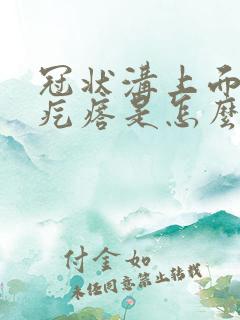 冠状溝上面
疙瘩是怎麼
付金如
未经同意禁止转载